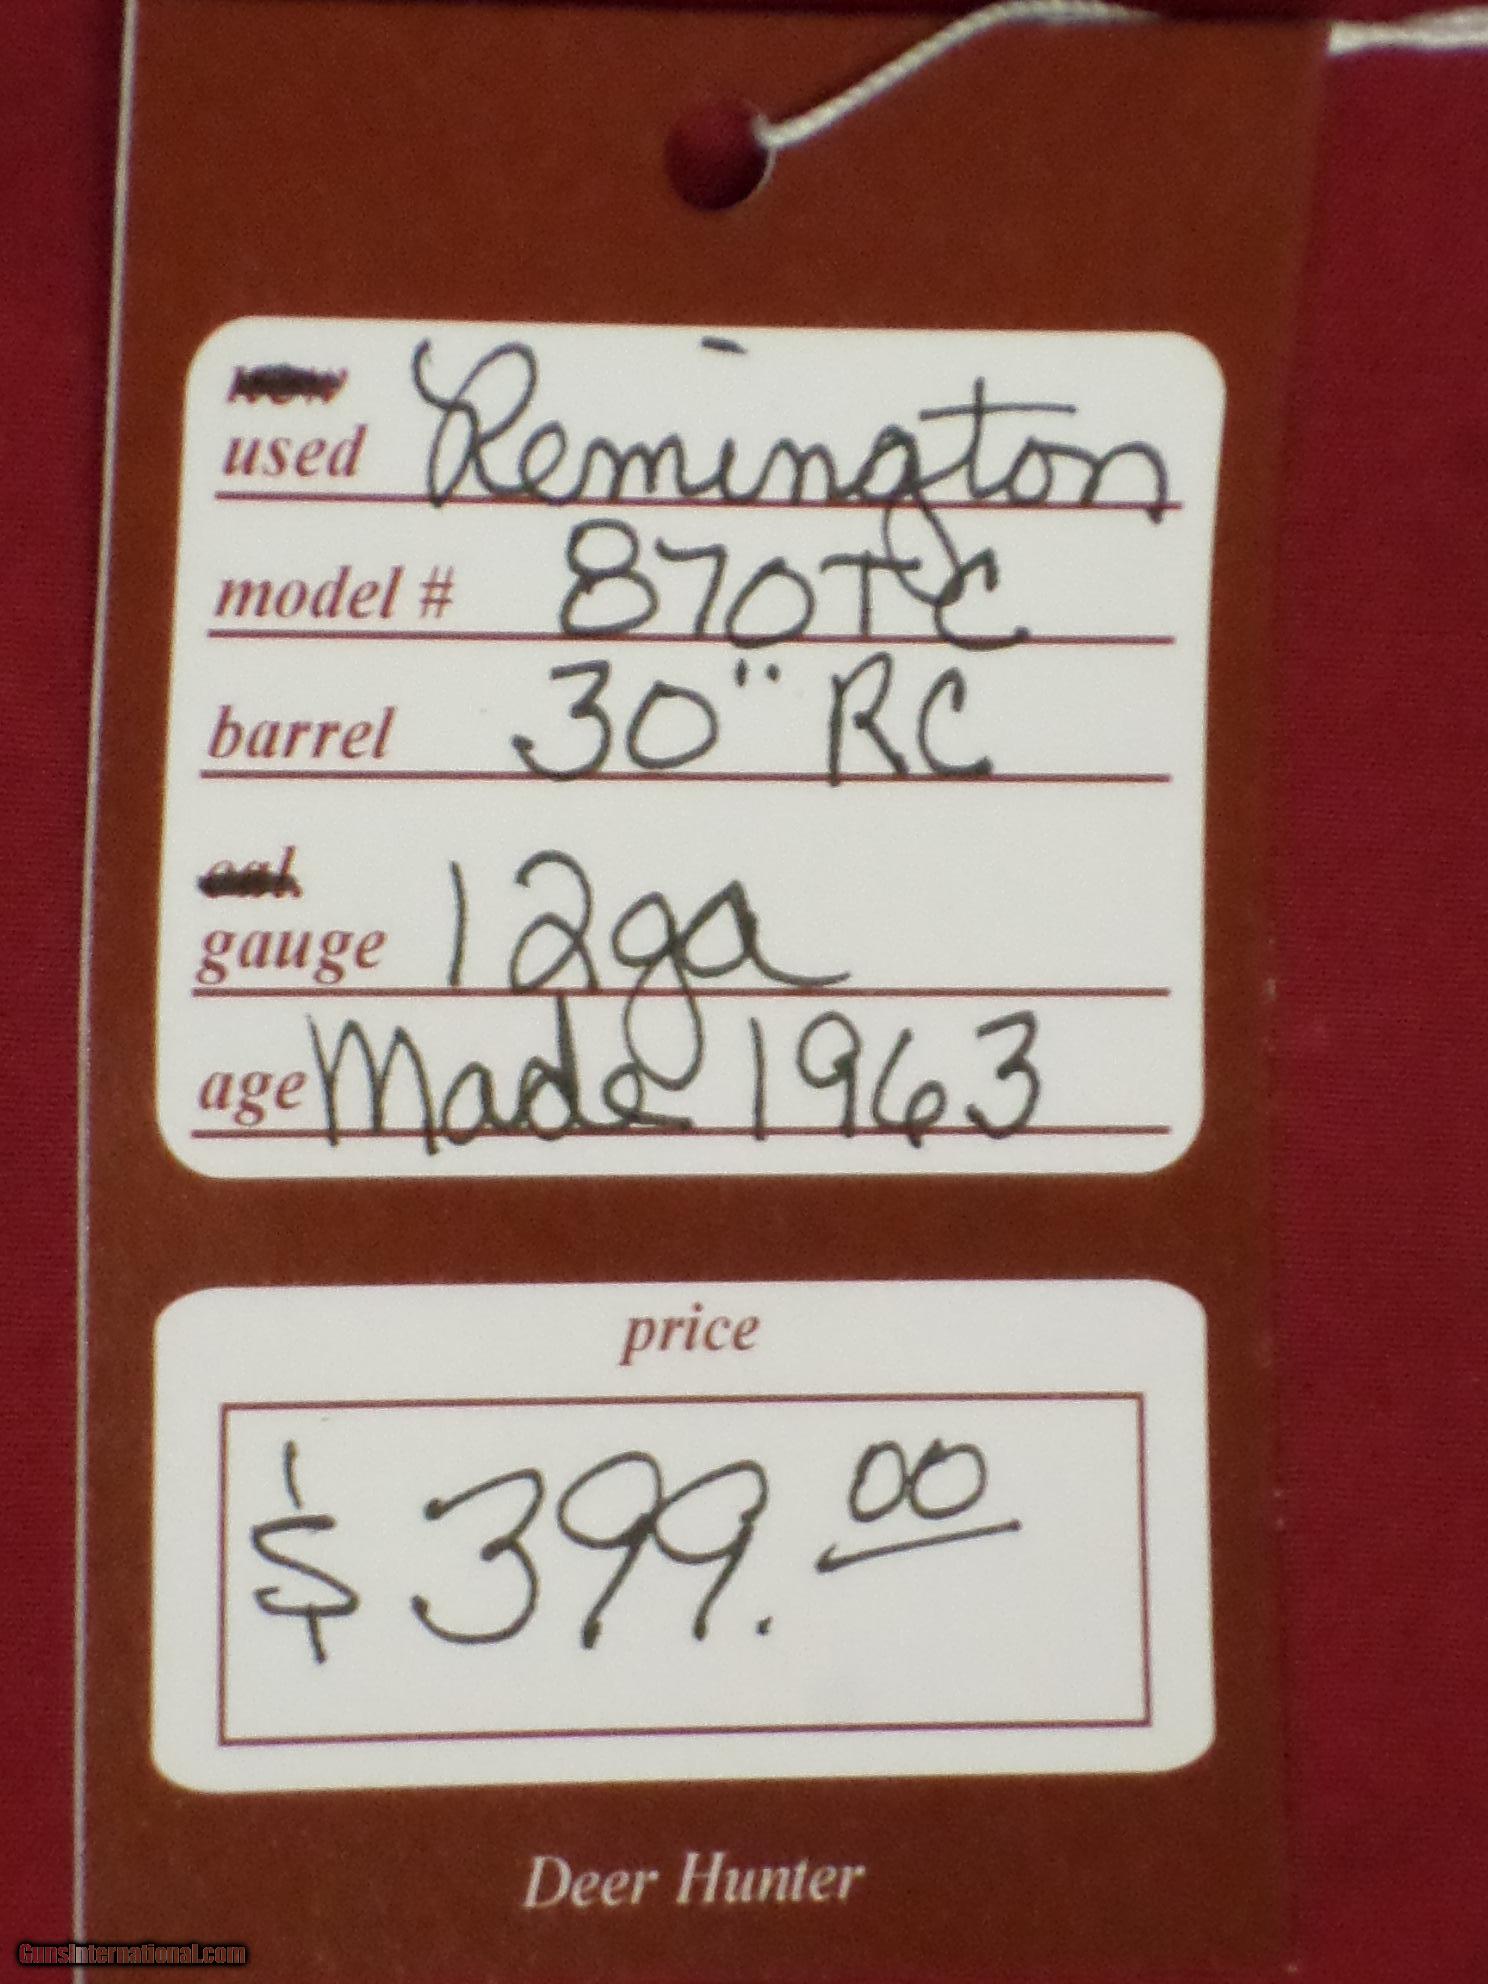 new
used Remington
model # 870TC
barrel 30" RC
cal.
gauge 12ga
age Made 1963
price
$399.00
Deer Hunter
GunsInternational.com